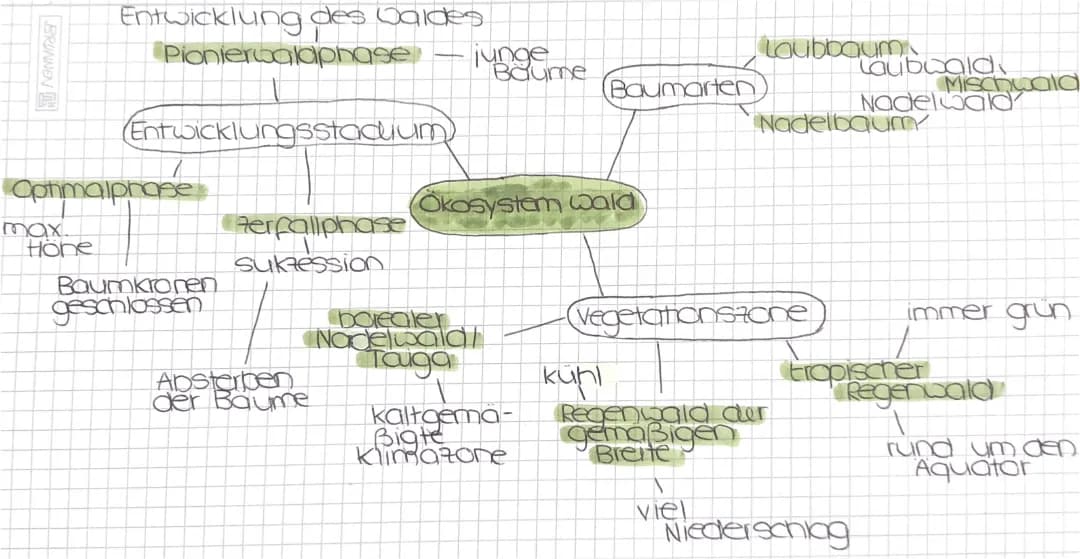 BRUNNEN
Entwicklung des Waldes
Pionierwaldphase — junge
Bäume
Entwicklungsstadium
Optimalphase
max.
Höhe
Baumkronen
geschlossen
Zerfallphase
Sukzession
Absterben
der Bäume
Ökosystem Wald
Baumarten
Laubbaum
Laubwald
Mischwald
Nadelwald
Nadelbaum
Vegetationszone
borealer
Nadelwald/
Taiga
kaltgemä-
ßigte
Klimazone
kühl
Regenwald der
gemäßigen
Breite
viel
Niederschlag
immer grün
tropischer
Regenwald
rund um den
Äquator